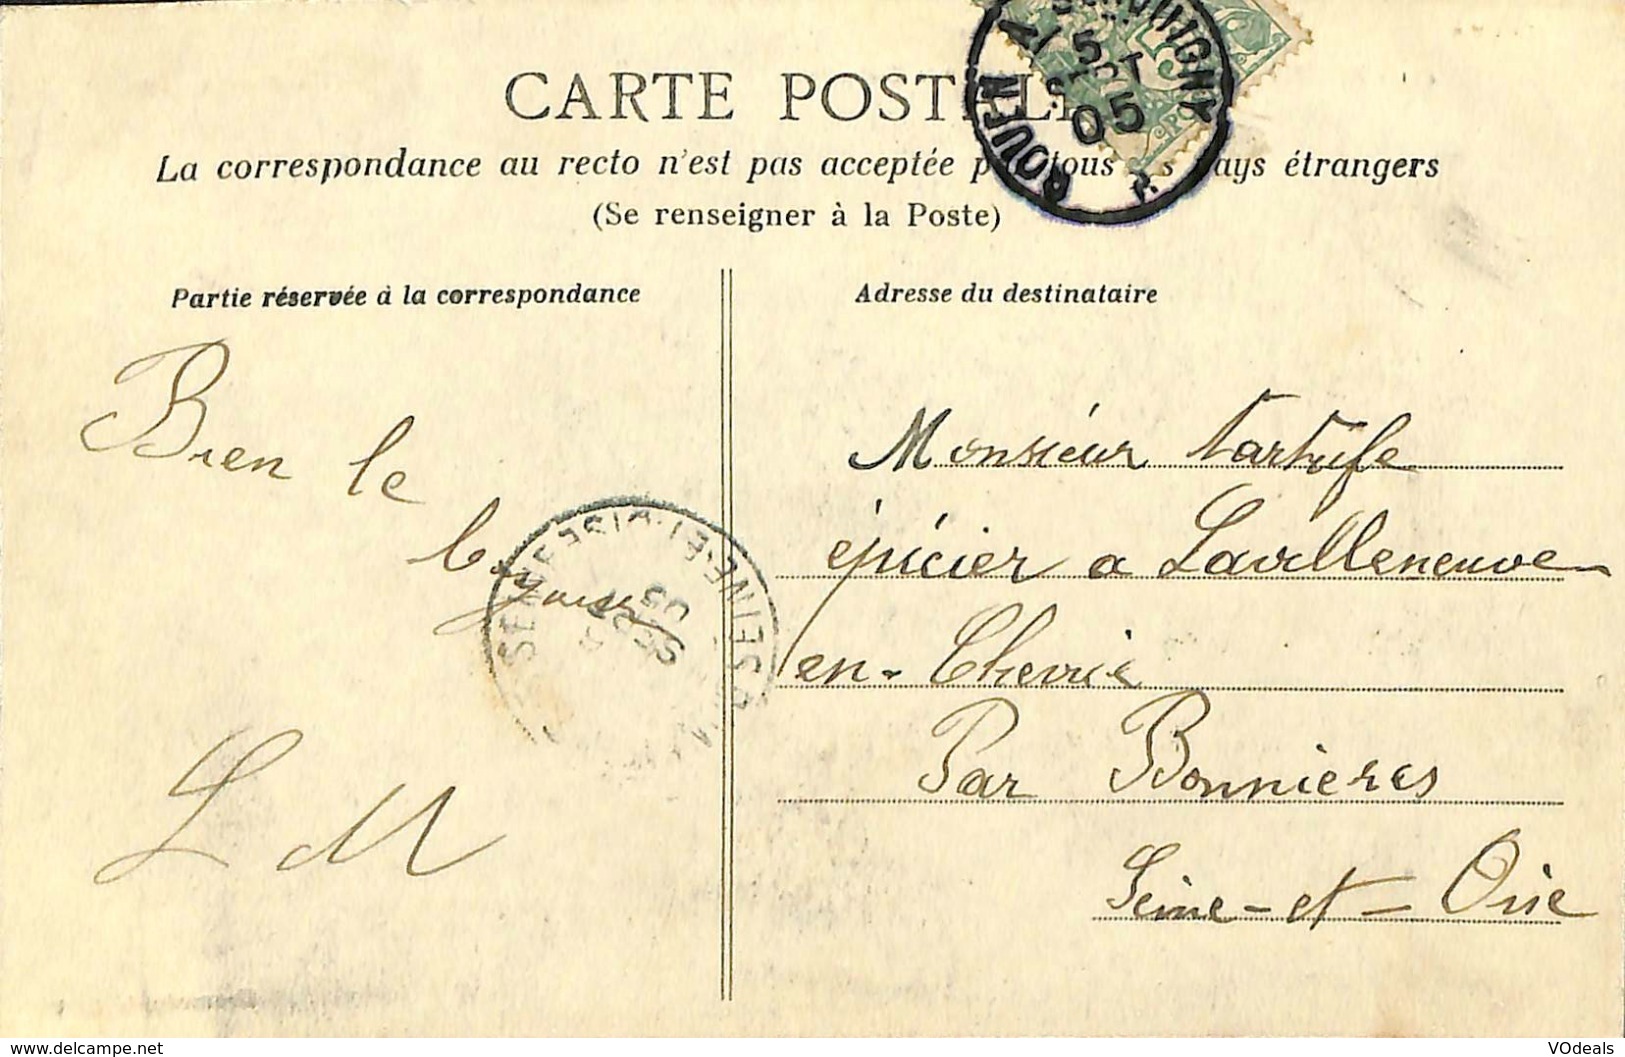 CARTE POSTALE
La correspondance au recto n'est pas acceptée par tous les pays étrangers
(Se renseigner à la Poste)
ROUEN
5
SEPT
05
5
Partie réservée à la correspondance
Adresse du destinataire
Bien le
bonjour
L M
SEINE-ET-OISE
SEPT
05
Monsieur tartufe
épicier a Lavilleneuve
en-Chevrie
Par Bonnieres
Seine-et-Oise
http://www.delcampe.net
VOdeals